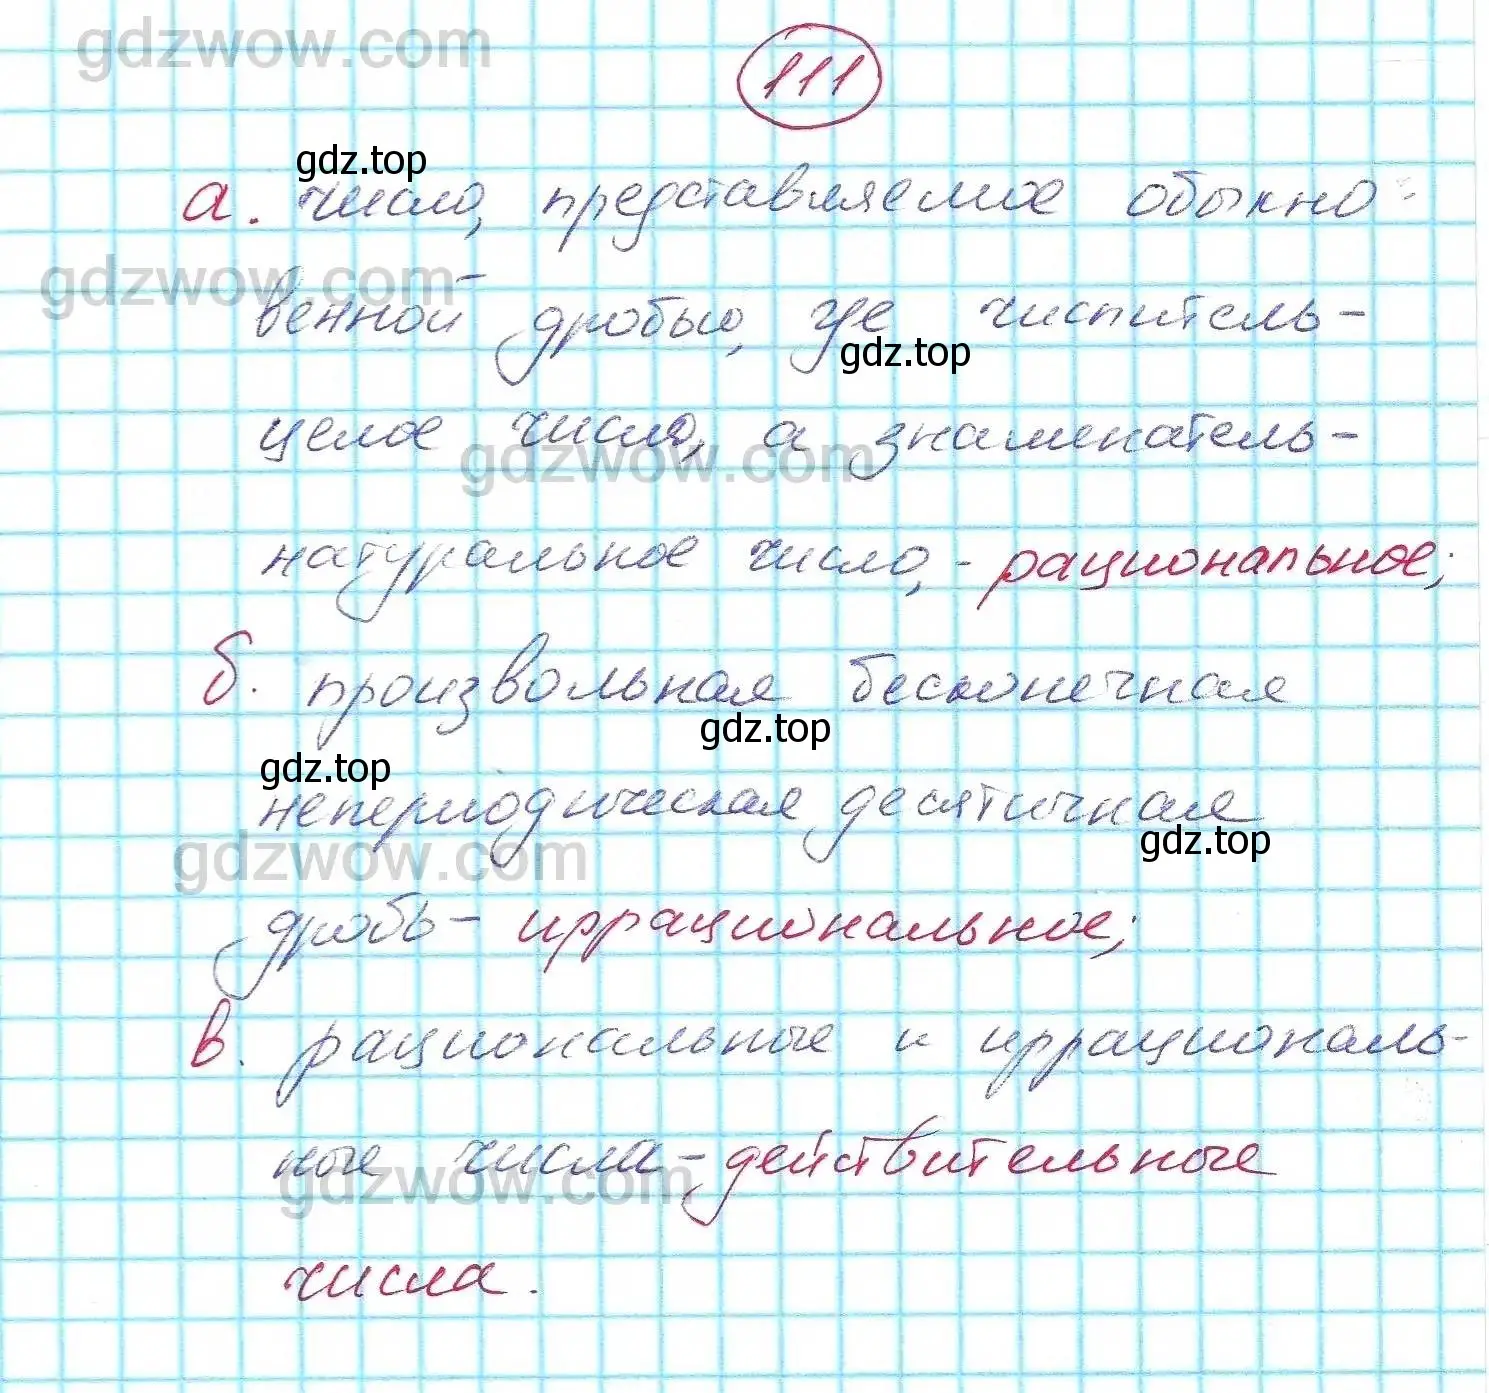 gdzwow.com
111
gdz.top
а. число, представляемое обыкно-
gdzwow.com
венной дробью, где числитель-
gdz.top
целое число, а знаменатель-
gdzwow.com
натуральное число, - рациональное;
б. произвольная бесконечная
gdz.top
gdz.top
непериодическая десятичная
gdz.top
gdzwow.com
дробь- иррациональное;
в. рациональные и иррациональ-
ные числа-действительные
gdzwow.com
числа.